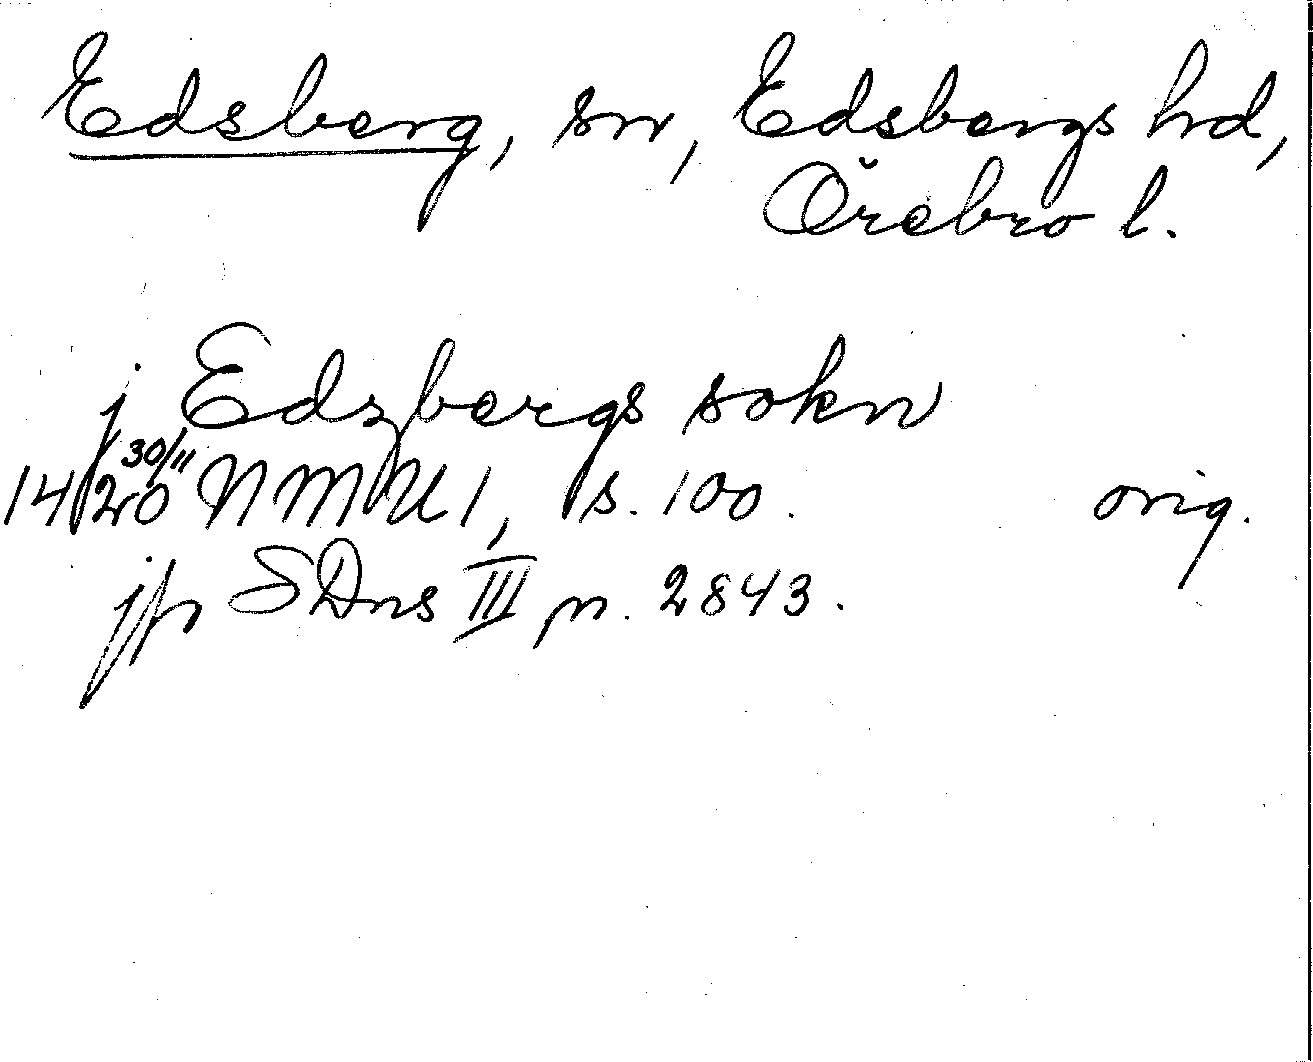 Edsberg, sn, Edsbergs hd,
Örebro l.
j Edzbergs sokn
1420 30/11 NMU 1, s. 100. orig.
jfr SDns III n. 2843.